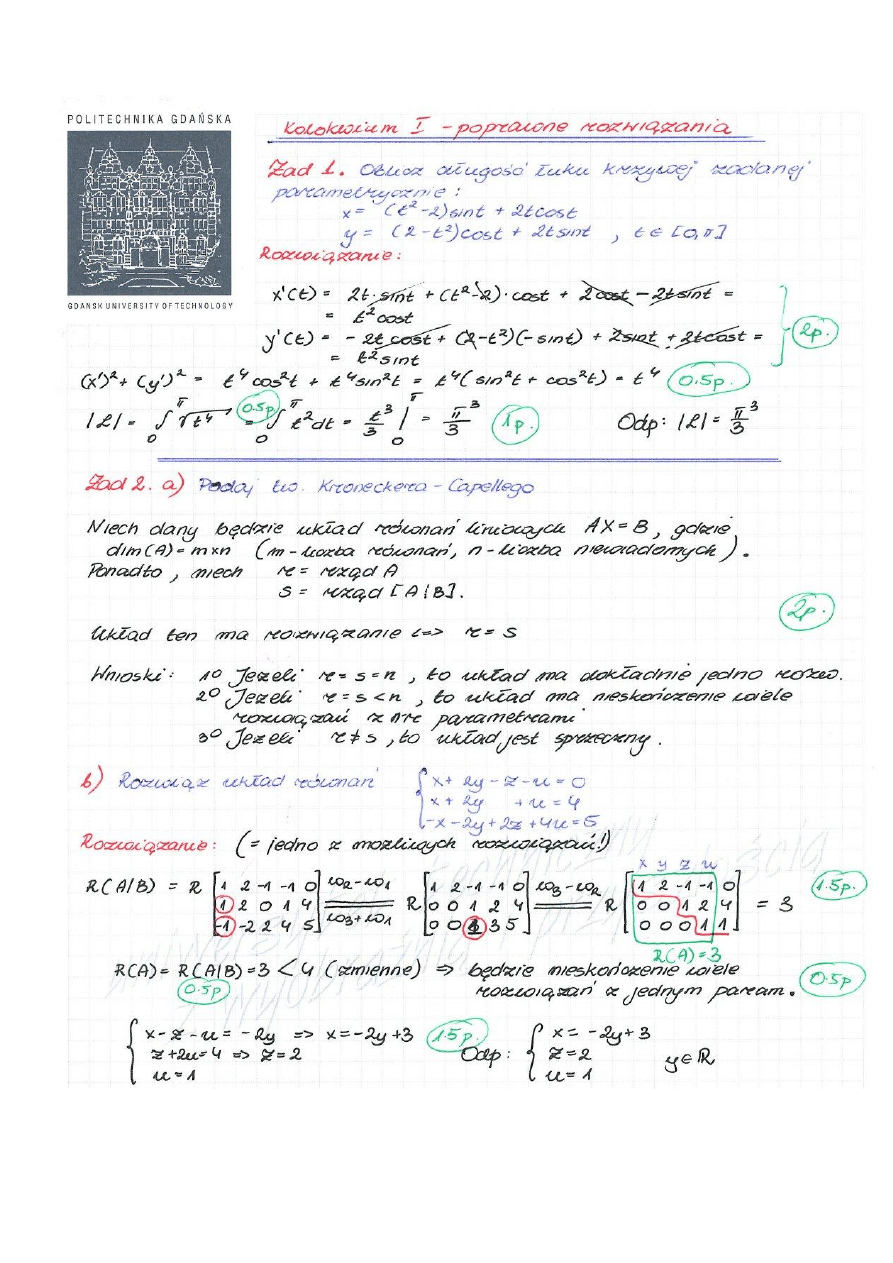 POLITECHNIKA GDAŃSKA
GDANSK UNIVERSITY OF TECHNOLOGY
Kolokwium I - poprawne rozwiązania
Zad 1. Oblicz długość łuku krzywej zadanej
parametrycznie:
x = (t²-2)sint + 2tcost
y = (2-t²)cost + 2tsint , t ∈ [0,π]
Rozwiązanie:
x'(t) = 2t·sint + (t²-2)·cost + 2cost - 2tsint =
= t²cost
y'(t) = -2tcost + (2-t²)(-sint) + 2sint + 2tcost =
= t²sint
2p.
(x')² + (y')² = t⁴cos²t + t⁴sin²t = t⁴(sin²t + cos²t) = t⁴ 0.5p.
|L| = ∫₀^π √t⁴ 0.5p = ∫₀^π t²dt = t³/3 |₀^π = π³/3 1p. Odp: |L| = π³/3
Zad 2. a) Podaj tw. Kroneckera-Capellego
Niech dany będzie układ równań liniowych AX=B, gdzie
dim(A)=m×n (m-liczba równań, n-liczba niewiadomych).
Ponadto, niech r = rząd A
s = rząd [A|B].
2p.
Układ ten ma rozwiązanie <=> r = s
Wnioski: 1° Jeżeli r = s = n , to układ ma dokładnie jedno rozw.
2° Jeżeli r = s < n , to układ ma nieskończenie wiele
rozwiązań z n-r parametrami
3° Jeżeli r ≠ s , to układ jest sprzeczny.
b) Rozwiąż układ równań { x + 2y - z - u = 0
x + 2y + u = 4
-x - 2y + 2z + 4u = 5
Rozwiązanie: (= jedno z możliwych rozwiązań!)
x y z u
R(A|B) = R [1 2 -1 -1 0 w2-w1 R [1 2 -1 -1 0 w3-w2 R [1 2 -1 -1 0 1.5p.
1 2 0 1 4 0 0 1 2 4 0 0 1 2 4 = 3
-1 -2 2 4 5] w3+w1 0 0 1 3 5] 0 0 0 1 1]
R(A)=3
R(A) = R(A|B) = 3 < 4 (zmienne) => będzie nieskończenie wiele
0.5p rozwiązań z jednym param. 0.5p
{ x - z - u = -2y => x = -2y+3 1.5p. Odp: { x = -2y+3
z + 2u = 4 => z = 2 z = 2 y∈ℝ
u = 1 u = 1